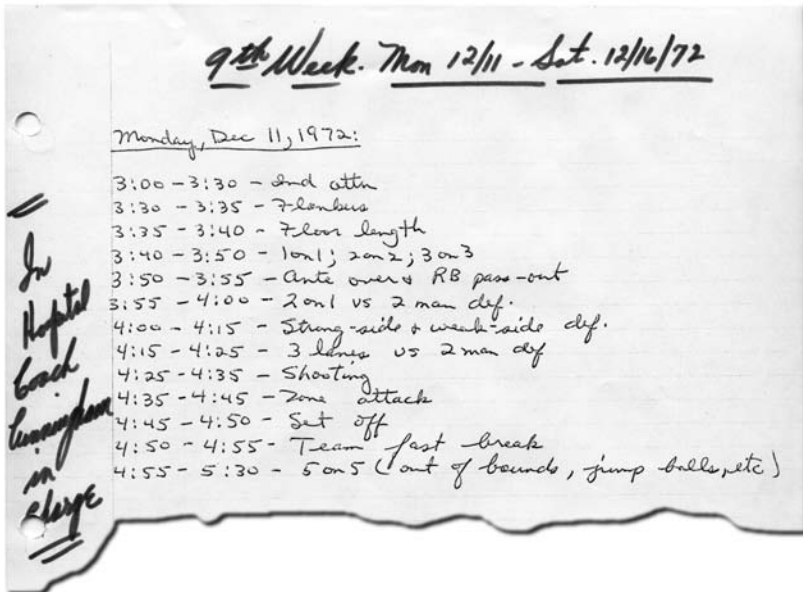 9th Week. Mon 12/11 - Sat. 12/16/72
Monday, Dec 11, 1972:
3:00 - 3:30 - Ind attn
3:30 - 3:35 -
3:35 - 3:40 - Floor length
3:40 - 3:50 - 1 on 1; 2 on 2; 3 on 3
3:50 - 3:55 - Ante over & RB pass-out
3:55 - 4:00 - 2 on 1 vs 2 man def.
4:00 - 4:15 - Strong-side & weak-side def.
4:15 - 4:25 - 3 lanes vs 2 man def
4:25 - 4:35 - Shooting
4:35 - 4:45 - Zone attack
4:45 - 4:50 - Set off
4:50 - 4:55 - Team fast break
4:55 - 5:30 - 5 on 5 (out of bounds, jump balls, etc)
In
Hospital
Coach
Cunningham
in
Charge